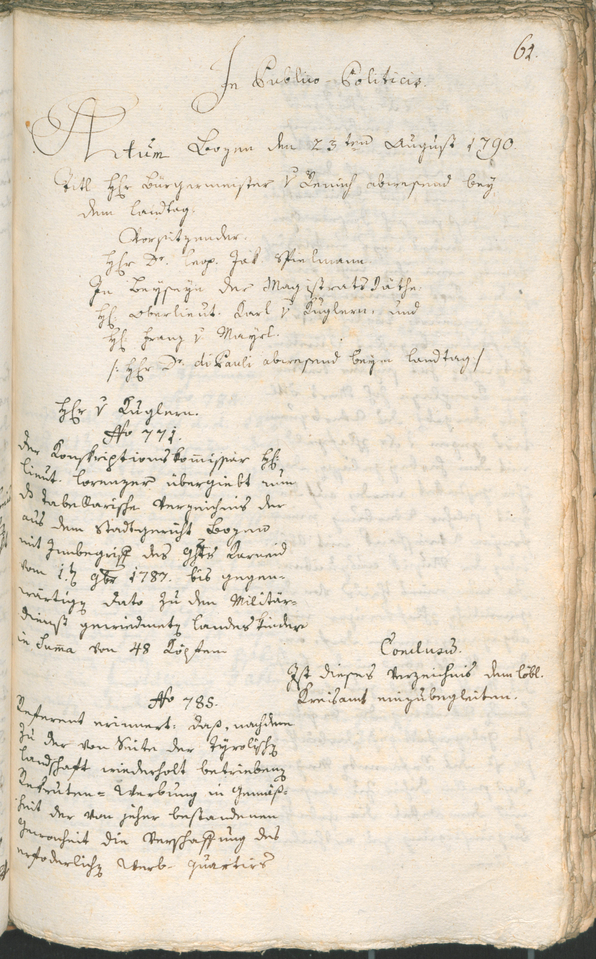 64.
In Publico-Politicis.
Actum Bozen den 23ten August 1790.
Titl Hr Bürgermeister v Zenich abwesend bey
dem Landtag.
Vorsitzender.
Hr Dr. Leop. Jak. Spielmann
In Beyseyn der Magistrats Räthe
H. Oberlieut. Karl v Kuglern, und
H. Franz v Mayrl.
/: Hr Dr. di Pauli abwesend beym Landtag :/
Hr v Kuglern.
No 771.
Der Konskriptionskommissär H.
Lieut. Lorenzer übergiebt nun
das Tabellarische Verzeichnis der
aus dem Stadtgericht Bozen
mit Innbegriff des Ghts Karneid
vom 1. 9ber 1787. bis gegen-
wärtigen Dato zu dem Militär-
dienst gewiedmeten Landeskinder
in Suma von 48 Köpfen
Conclusum.
Ist dieses Verzeichnis dem löbl.
Kreisamt einzubegleiten.
No 785.
Referent erinnert: daß, nachdem
zu der von Seite der Tyrolischen
Landschaft wiederholt betriebenen
Rekruten-Werbung in Gemäß-
heit der von jeher bestandenen
Gewohnheit die Verschaffung des
erforderlichen Werb-Quartiers